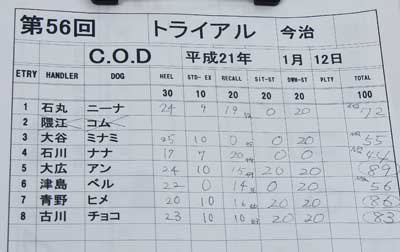 第56回 トライアル 今治
C.O.D 平成21年 1月 12日
ETRY HANDLER DOG HEEL STD-EX RECALL SIT-ST DWN-ST PLTY TOTAL
30 10 20 20 20 100
1 石丸 ニーナ 24 9 19 0 20 NQ 72
2 隈江 コム
3 大谷 ミナミ 25 10 0 0 20 NQ 55
4 石川 ナナ 17 7 20 0 0 NQ 44
5 大広 アン 24 10 15 20 20 89
6 津島 ベル 22 0 14 0 20 NQ 56
7 青野 ヒメ 20 10 16 20 20 86
8 古川 チョコ 23 10 10 20 20 83